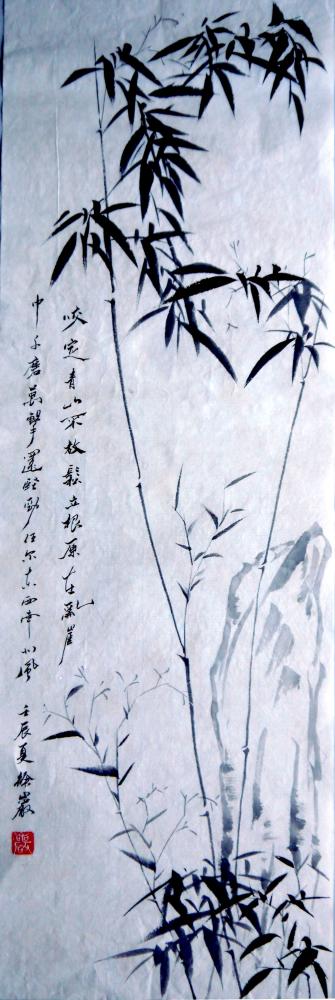 咬定青山不放鬆立根原在亂崖
中千磨萬擊還堅勁任尔東西南北風
壬辰夏徐巖